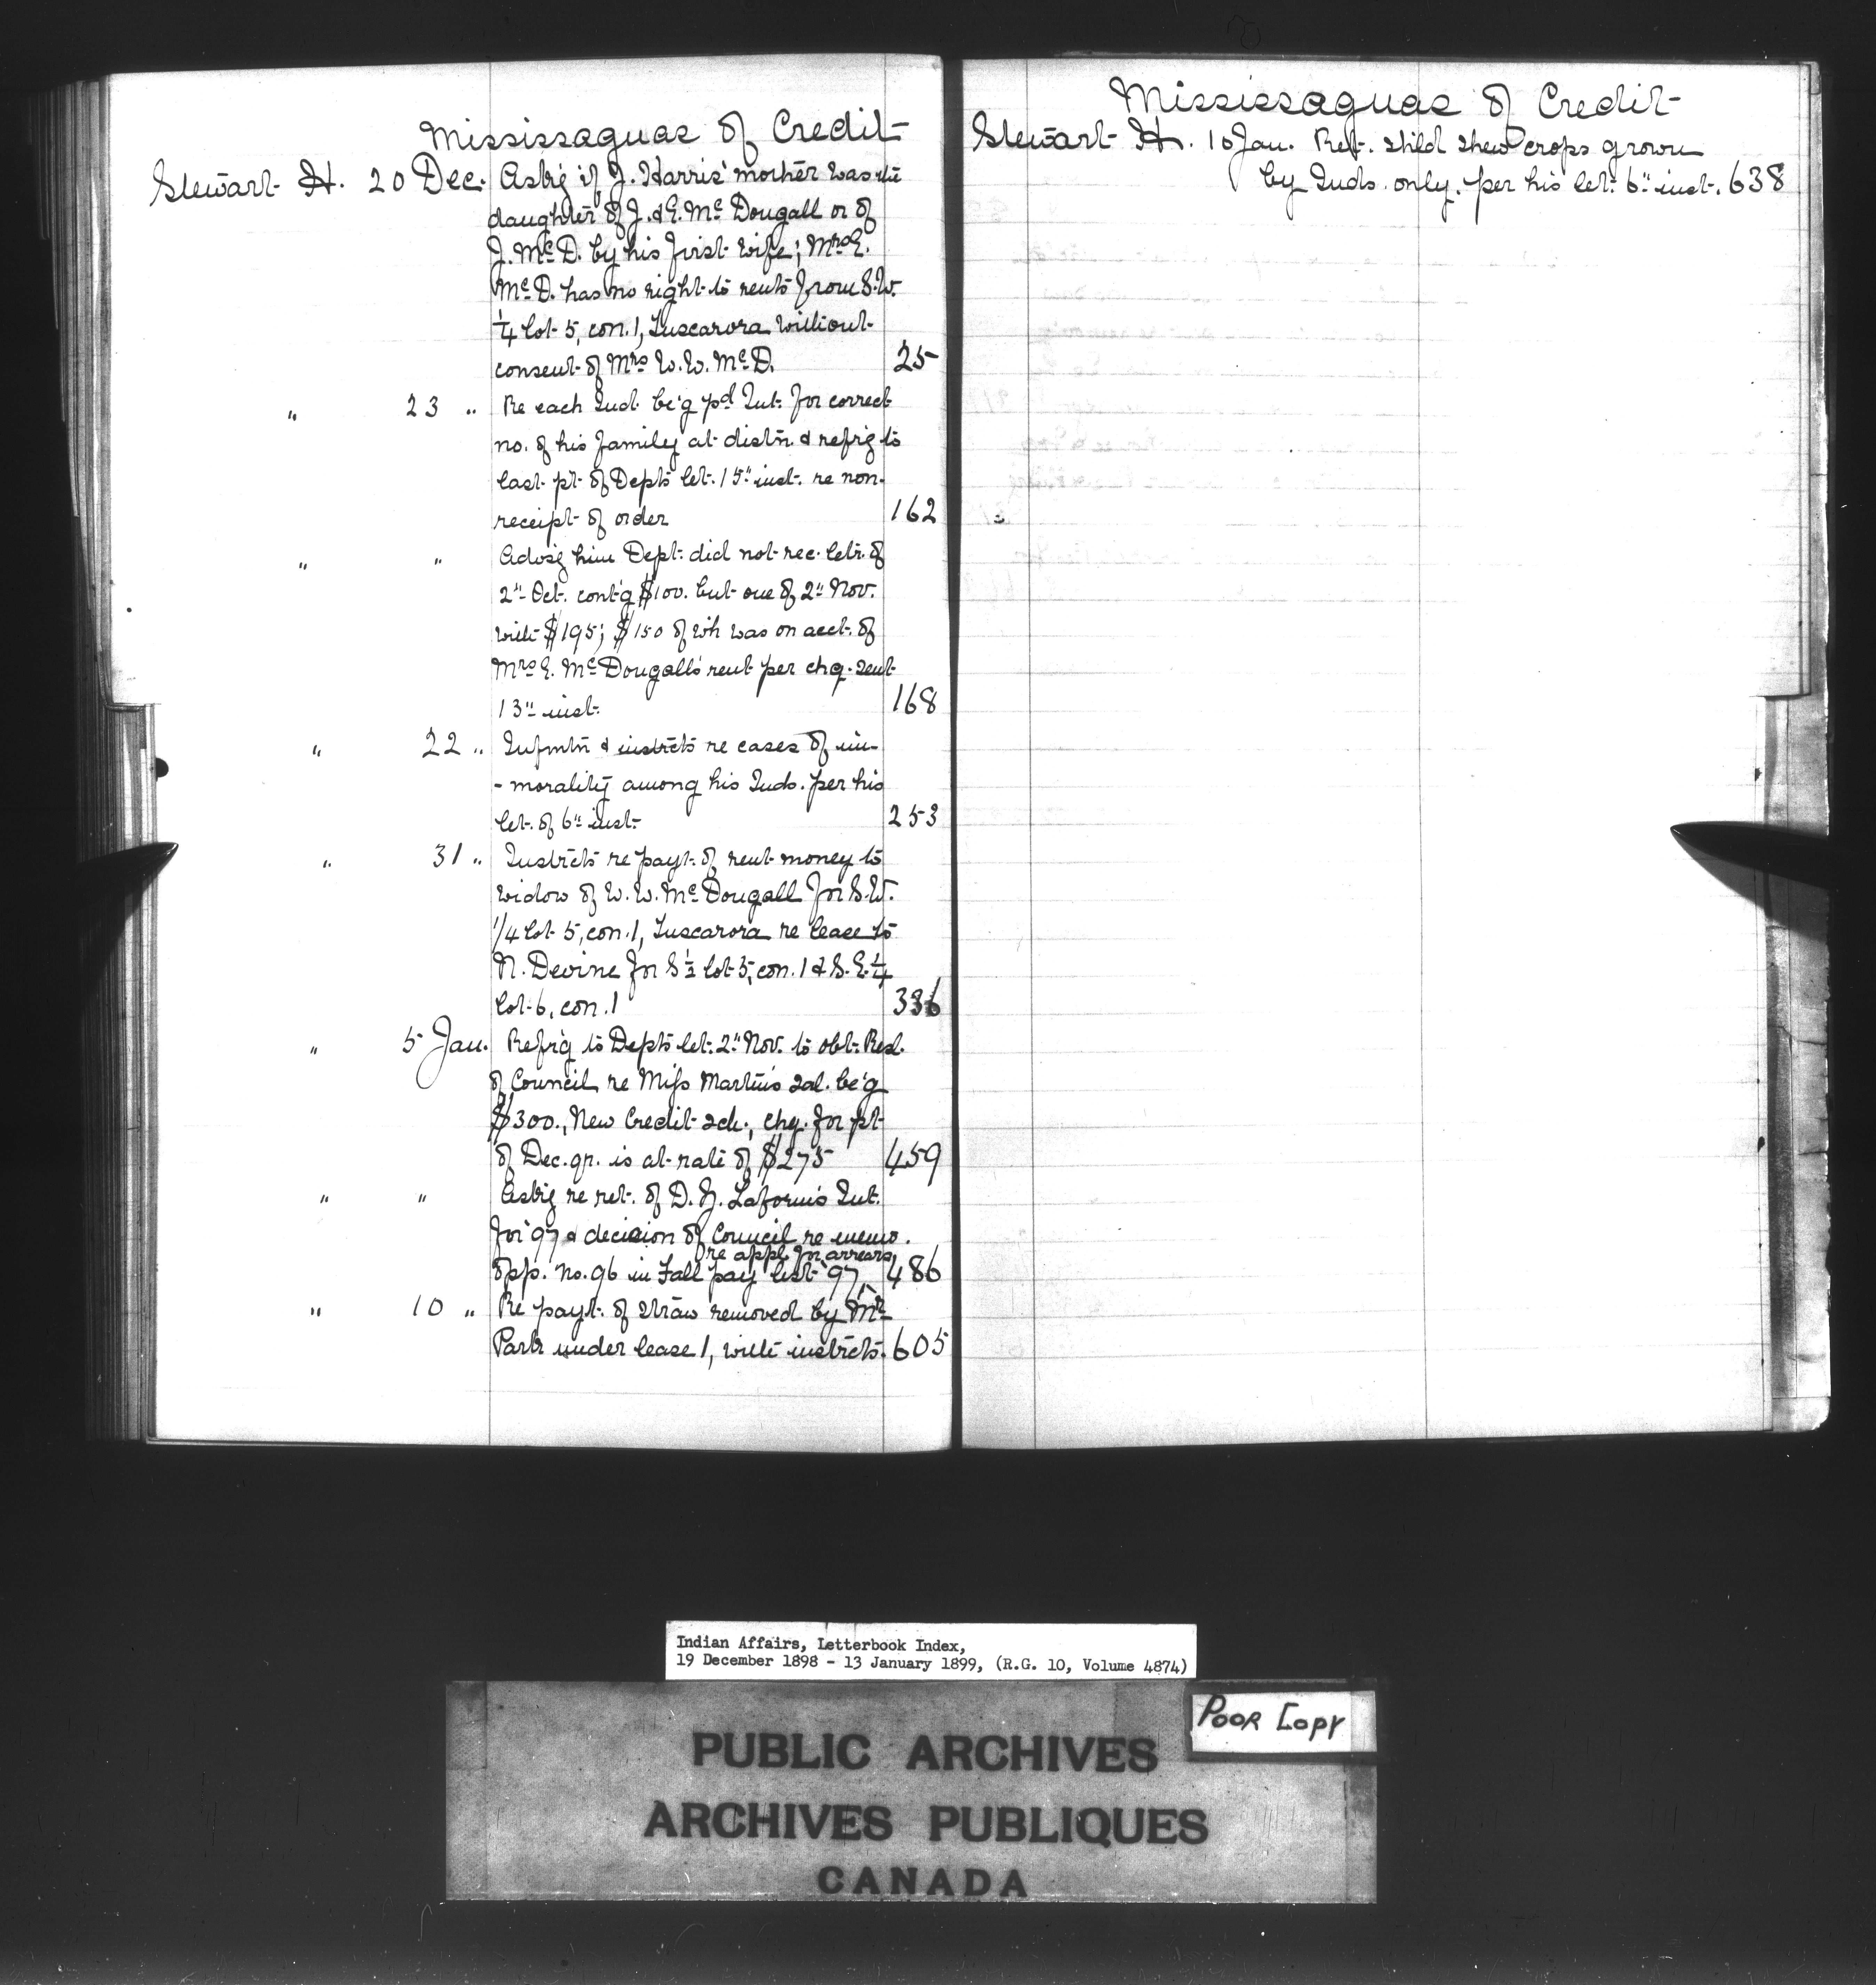 Mississaguas of Credit
Stewart H. 20 Dec. Ask'g if J. Harris' mother was the
daughter of J. & E. McDougall or of
J. McD. by his first wife; Mrs E.
McD. has no right to rents from S.W.
1/4 lot 5, con. 1, Tuscarora without
consent of Mrs W. W. McD. 25
" 23 " Re each Ind. be'g pd Int. for correct
no. of his family at distn & refrig to
last pt of Depts let. 15" inst. re non-
receipt of order 162
" " Advis'g him Dept. did not rec. letr. of
2" Oct. cont'g $100. but one of 2" Nov.
with $195; $150 of wh was on acct. of
Mrs E. McDougall's rent per chq. sent
13" inst. 168
" 22 " Infmtn & instrcts re cases of im-
-morality among his Inds. per his
let. of 6" inst. 253
" 31 " Instrcts re payt. of rent money to
widow of W. W. McDougall for S.W.
1/4 lot 5, con. 1, Tuscarora re lease to
N. Devine for S 1/2 lot 5, con. 1 & S.E. 1/4
lot 6, con. 1 336
" 5 Jan. Ref'g to Depts let. 2" Nov. to obt. Resl.
of Council re Miss Martin's sal. be'g
$300., New Credit sch., chq. for pt
of Dec. qr. is at rate of $275 459
" " Ask'g re ret. of D. Laform's Int.
for '97 & decision of Council re memo.
re appl. for arrears
opp. no. 96 in Fall pay list '97 486
" 10 " Re payt. of straw removed by Mr
Park under lease 1, with instrcts. 605
Mississaguas of Credit
Stewart H. 10 Jan. Ret. shld shew crops grown
by Inds. only. per his let. 6" inst. 638
Indian Affairs, Letterbook Index,
19 December 1898 - 13 January 1899, (R.G. 10, Volume 4874)
Poor Copy
PUBLIC ARCHIVES
ARCHIVES PUBLIQUES
CANADA